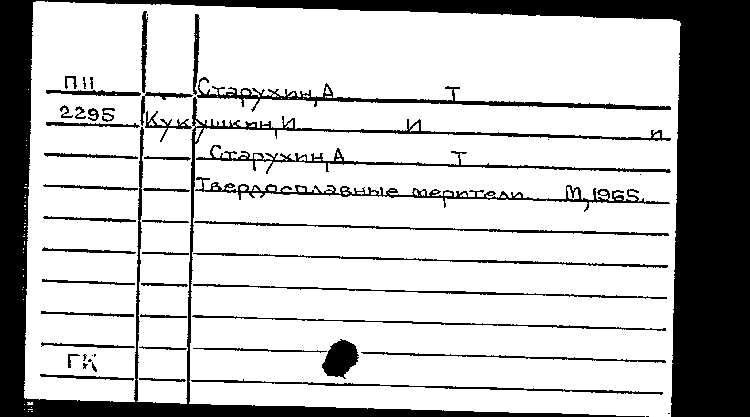 П11 Старухин, А Т
2295 Кукушкин, И И и
Старухин, А Т
Твердосплавные мерители М, 1965.
ГК